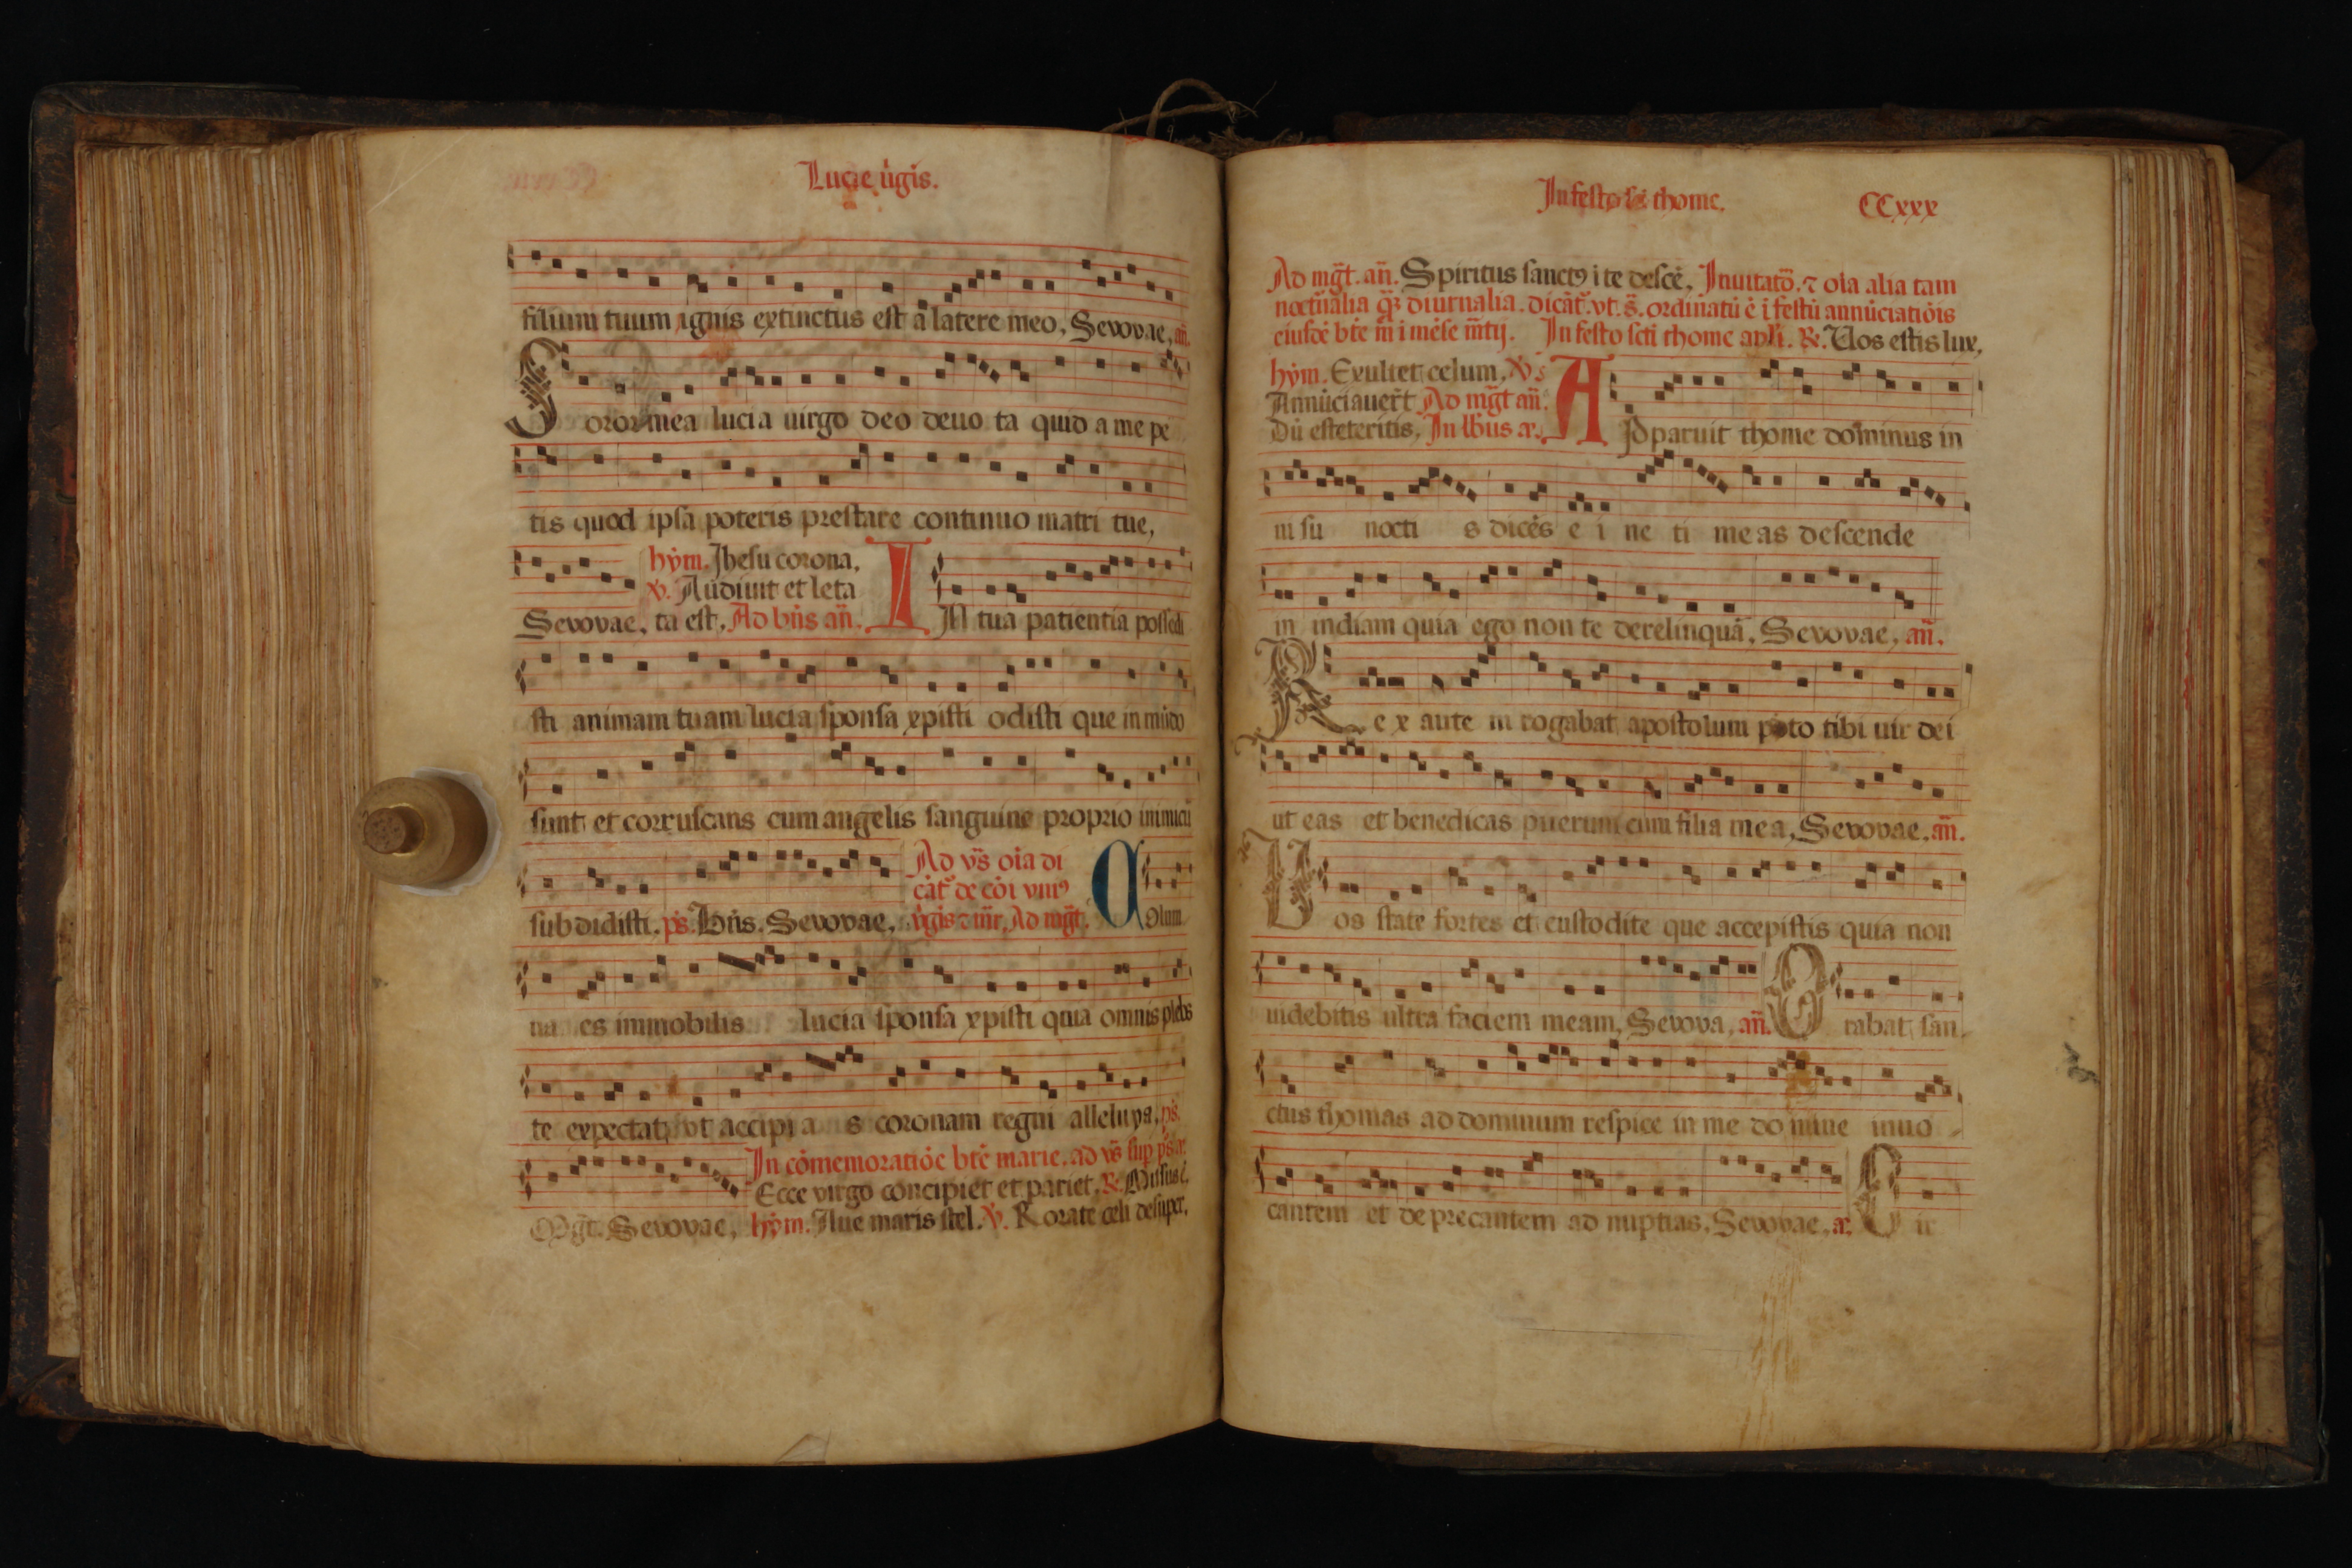 Lucie ũgis.
filium tuum ignis extinctus est a latere meo, Sevovae, añ.
Soror mea lucia uirgo deo deuo ta quid a me pe
tis quod ipsa poteris prestare continuo matri tue,
hym. Jhesu corona,
v. Audiuit et leta
Sevovae, ta est. Ad bñs añ. IN tua patientia possedi
sti animam tuam lucia sponsa xpisti odisti que in mũdo
sunt et corruscans cum angelis sanguine proprio inimicũ
Ad vs̃ oĩa di
cãt᷑ de cõi vniꝰ
subdidisti. ps̃. Bñs. Sevovae, ũgis ⁊ mr̃. Ad mgt̃. Colum
na es immobilis lucia sponsa xpisti quia omnis plebs
te expectat vt accipi a s coronam regni alleluya, ps̃.
In cõmemoratiõe btẽ marie. ad vs̃ sup ps̃ a᷑.
Ecce virgo concipiet et pariet, ℞. Missus ẽ.
Mgt̃. Sevovae, hym. Aue maris stel. v. Rorate celi desuper,
In festo sc̃i thome. CCxxx
Ad mgt̃. añ. Spiritus sanctꝰ i te descẽ. Inuitatõ. ⁊ oĩa alia tam
nocturnalia qꝫ diurnalia. dicãt᷑. vt. s̃. ordinatũ ẽ ĩ festũ annũciatiõis
eiusdẽ btẽ m̃ i mẽse m̃tij. In festo scti thome apli. ℞. Uos estis lux,
hym. Exultet celum, v̄s
Annũciauer̃t Ad mgt̃ añ.
Dũ esteteritis, In lbus a᷑. APparuit thome dominus in
ui su nocti s dicẽs e i ne ti meas descende
in indiam quia ego non te derelinquã, Sevovae, añ.
Rex aute m rogabat apostolum peto tibi uir dei
ut eas et benedicas puerum cum filia mea, Sevovae. añ.
Uos state fortes et custodite que accepistis quia non
uidebitis ultra faciem meam, Sevova, añ. Orabat san
ctus thomas ad dominum respice in me do mine inuo
cantem et deprecantem ad nuptias, Sevovae, a᷑.